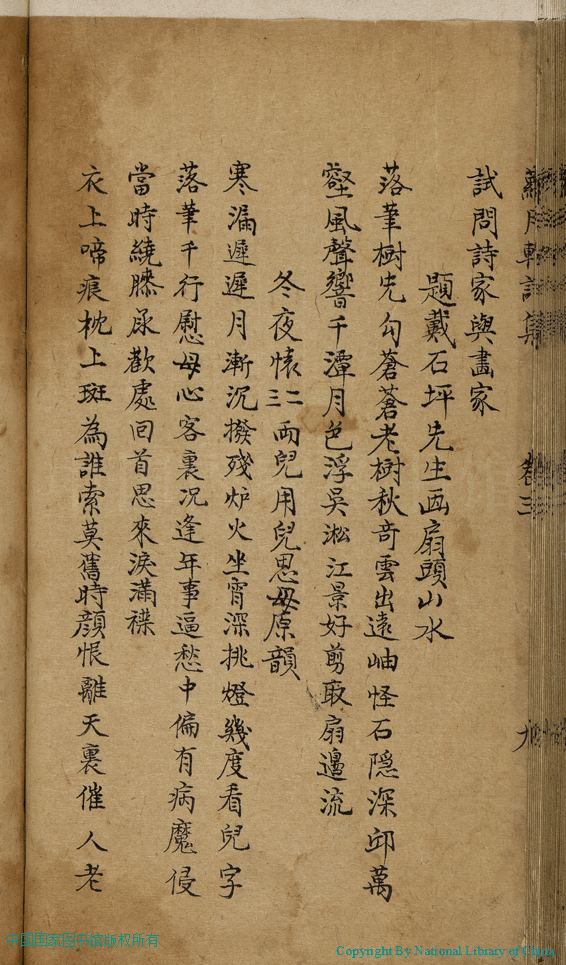 月軒詩集
卷三
九
試問詩家與畫家
題戴石坪先生画扇頭山水
落筆樹先勾蒼蒼老樹秋奇雲出遠岫怪石隱深邱萬
壑風聲響千潭月色浮吳淞江景好剪取扇邊流
冬夜懷二三兩兒用兒思母原韻
寒漏遲遲月漸沉撥殘炉火坐宵深挑燈幾度看兒字
落筆千行慰母心客裏况逢年事逼愁中偏有病魔侵
當時繞膝承歡處回首思來淚滿襟
衣上啼痕枕上斑為誰索莫舊時顏恨離天裏催人老
中国国家图书馆版权所有
Copyright By National Library of China